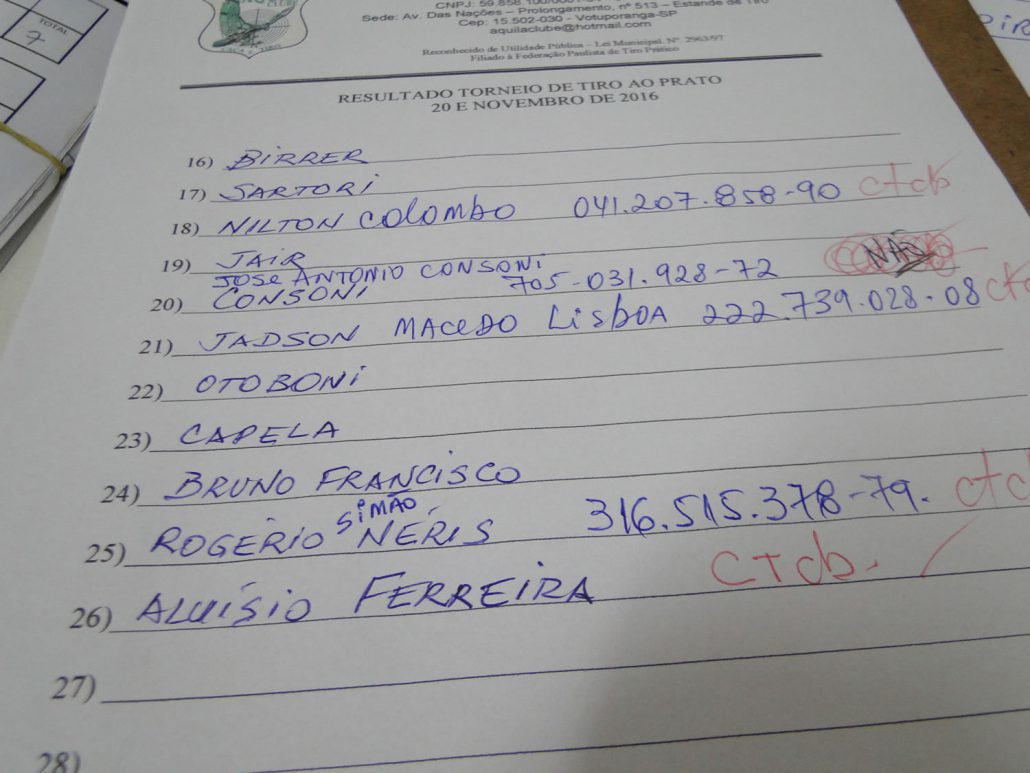 TOTAL
7
CNPJ: 59.858.100/0001-
Sede: Av. Das Nações – Prolongamento, nº 513 – Estande de Tiro
Cep: 15.502-030 - Votuporanga-SP
aquilaclube@hotmail.com
Reconhecido de Utilidade Pública – Lei Municipal. Nº. 2963/97
Filiado à Federação Paulista de Tiro Prático
RESULTADO TORNEIO DE TIRO AO PRATO
20 E NOVEMBRO DE 2016
16) BIRRER
17) SARTORI
18) NILTON COLOMBO 041.207.858-90 ctcb
19) JAIR
JOSE ANTONIO CONSONI NÃO
20) CONSONI 705-031.928-72
21) JADSON MACEDO LISBOA 222.739.028-08 ctc
22) OTOBONI
23) CAPELA
24) BRUNO FRANCISCO
SIMÃO
25) ROGÉRIO NÉRIS 316.515.378-79. ctc
26) ALUÍSIO FERREIRA CTcb.
27)
28)